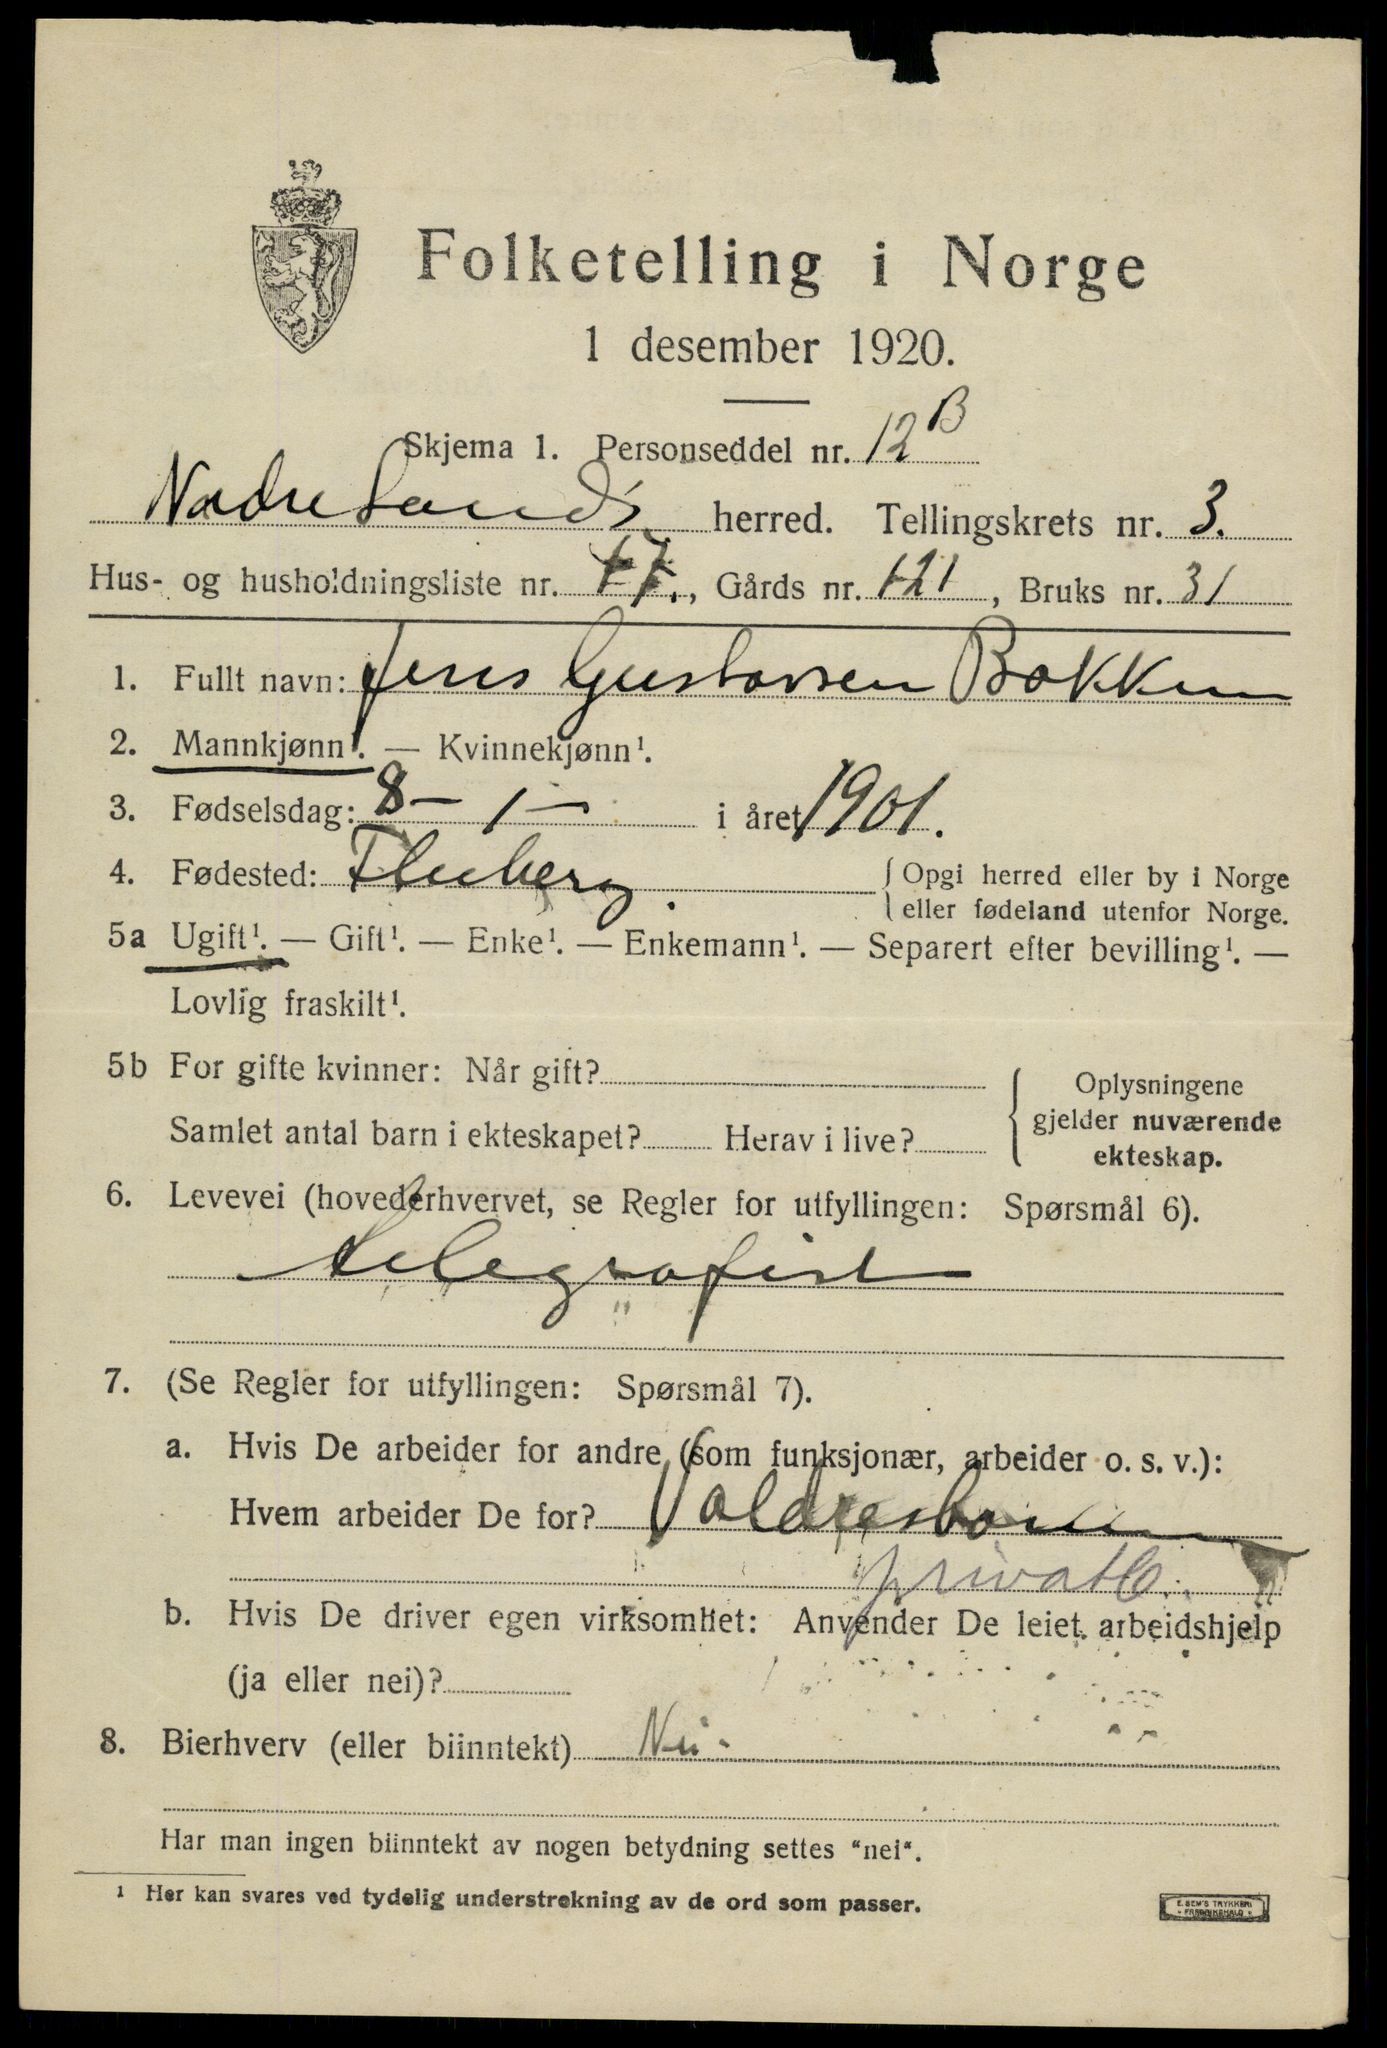 Folketelling i Norge
1 desember 1920.
Skjema 1. Personseddel nr. 12 B
Nordre Lands herred. Tellingskrets nr. 3.
Hus- og husholdningsliste nr. 17., Gårds nr. 121, Bruks nr. 31
1. Fullt navn: Jens Gustavsen Bakken
2. Mannkjønn¹. — Kvinnekjønn¹.
3. Fødselsdag: 8 – 1 – i året 1901.
4. Fødested: Fluberg. { Opgi herred eller by i Norge
eller fødeland utenfor Norge.
5a Ugift¹. — Gift¹. — Enke¹. — Enkemann¹. — Separert efter bevilling¹. —
Lovlig fraskilt¹.
5b For gifte kvinner: Når gift?
Samlet antal barn i ekteskapet? Herav i live?
{ Oplysningene
gjelder nuværende
ekteskap.
6. Levevei (hovederhvervet, se Regler for utfyllingen: Spørsmål 6).
telegrafist
7. (Se Regler for utfyllingen: Spørsmål 7).
a. Hvis De arbeider for andre (som funksjonær, arbeider o. s. v.):
Hvem arbeider De for? Valdresbanen
privat
b. Hvis De driver egen virksomhet: Anvender De leiet arbeidshjelp
(ja eller nei)?
8. Bierhverv (eller biinntekt) Nei.
Har man ingen biinntekt av nogen betydning settes "nei".
¹ Her kan svares ved tydelig understrekning av de ord som passer.
E. SEM'S TRYKKERI
FREDRIKSHALD